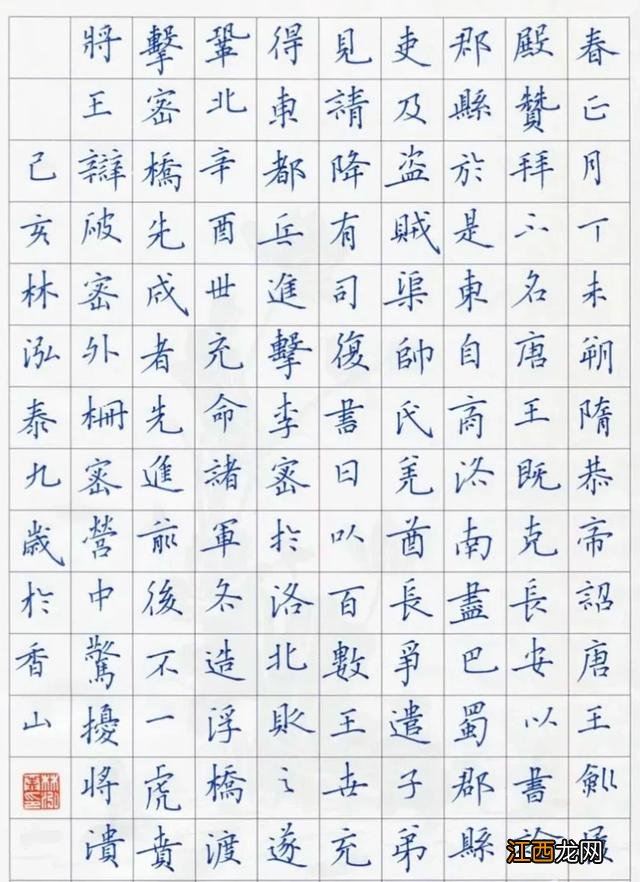 春正月丁未朔隋恭帝詔唐王劍履
殿贊拜不名唐王既克長安以書諭
郡縣於是東自商洛南盡巴蜀郡縣
吏及盜賊渠帥氐羌酋長爭遣子弟
見請降有司復書日以百數王世充
得東都兵進擊李密於洛北敗之遂
鞏北辛酉世充命諸軍各造浮橋渡
擊密橋先成者先進前後不一虎賁
將王辯破密外柵密營中驚擾將潰
己亥林泓泰九歲於香山
江西龙网